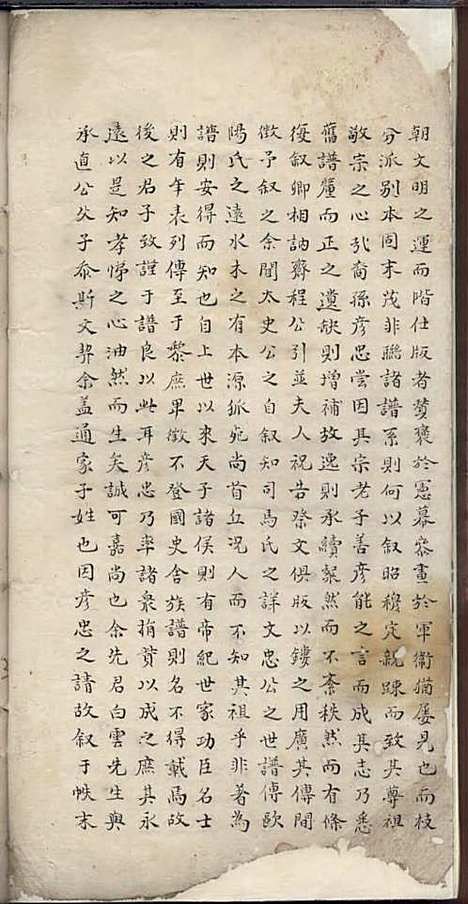 朝文明之運而階仕版者贊褒於憲幕密畫於軍衛猶屢見也而枝
分派別本同末茂非聯諸譜系則何以叙昭穆定親踈而致其尊祖
敬宗之心哉裔孫彦忠嘗因其宗老子善彦能之言而成其志乃悉
舊譜釐而正之遺缺則增補故逸則承續粲然而不紊秩然而有條
復叙卿相訥齋程公引並夫人祝告祭文俱版以鏤之用廣其傳間
徵予叙之余聞太史公之自叙知司馬氏之詳文忠公之世譜傳歐
陽氏之遠水木之有本源狐兎尚首丘况人而不知其祖乎非著為
譜則安得而知也自上世以來天子諸侯則有帝紀世家功臣名士
則有年表列傳至于黎庶卑微不登國史舍族譜則名不得載焉故
後之君子致謹于譜良以此耳彦忠乃率諸衆捐貲以成之庶其永
遠以是知孝悌之心油然而生矣誠可嘉尚也余先君白雲先生與
承直公父子忝斯文挈余盖通家子姓也因彦忠之請故叙于帙末